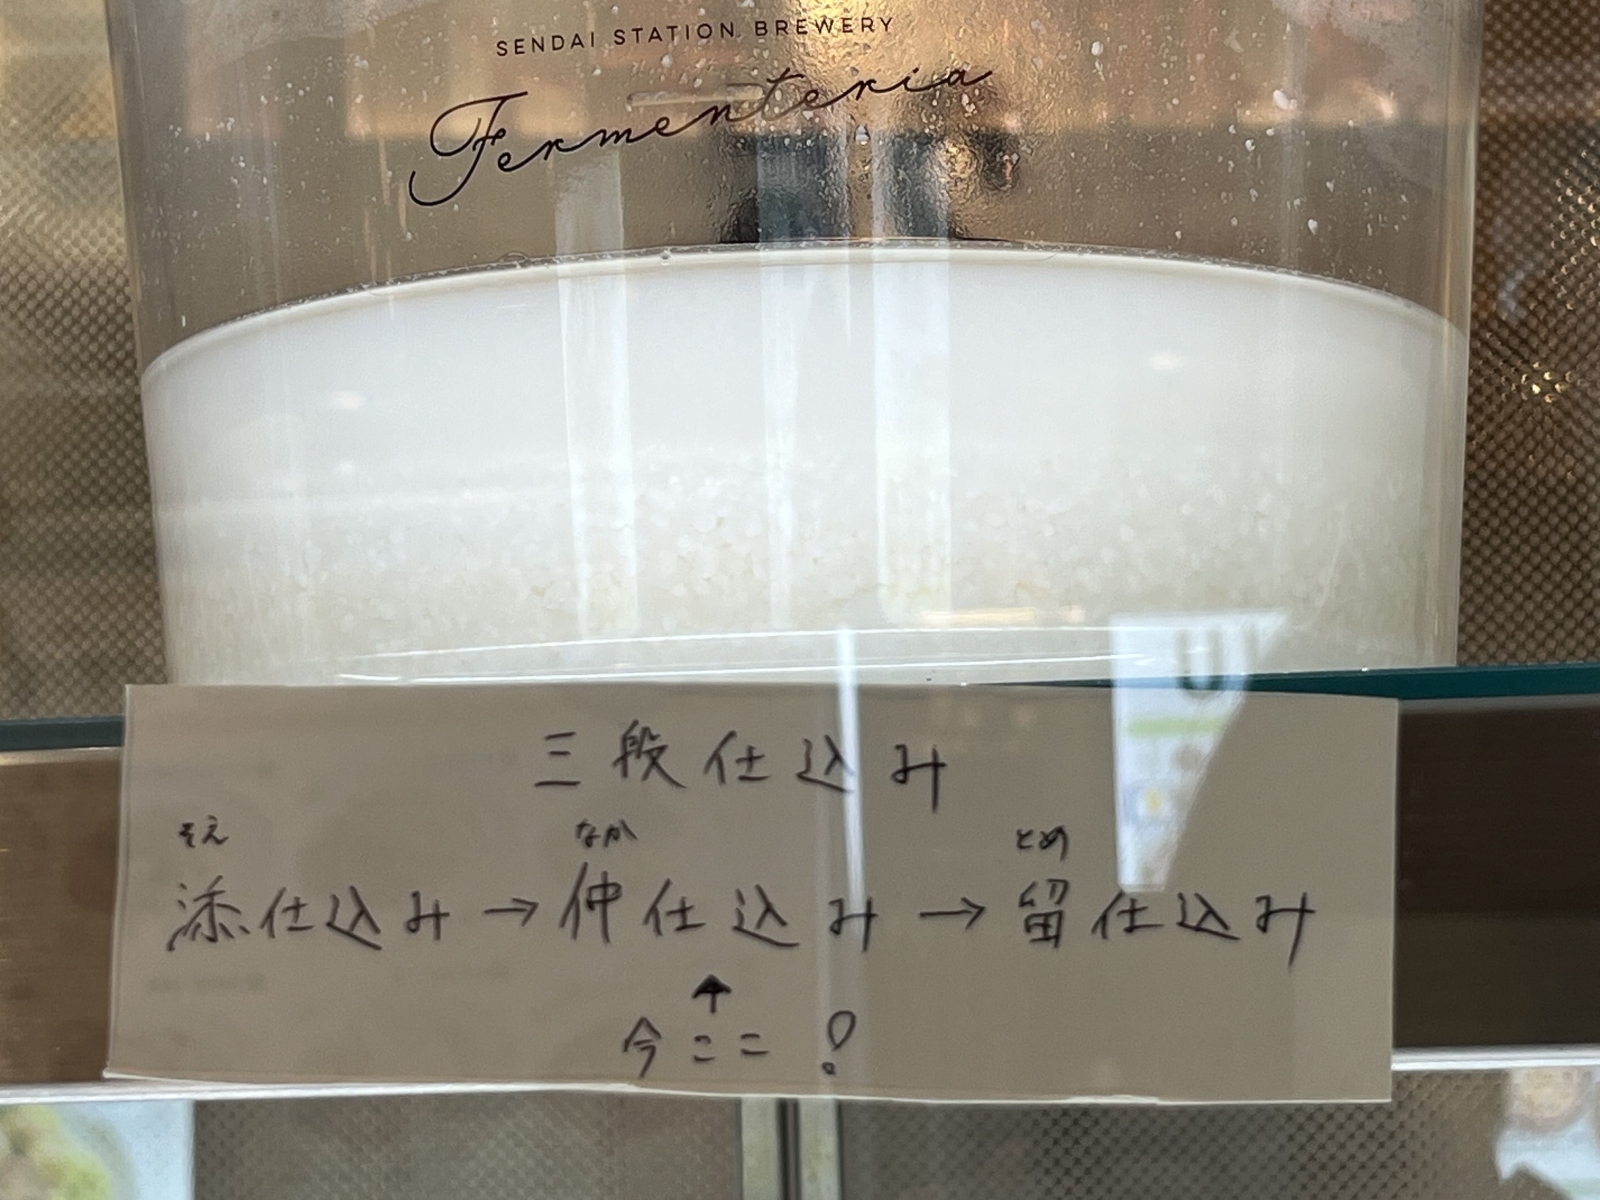 SENDAI STATION BREWERY
Fermenteria
三段仕込み
そえ なか とめ
添仕込み→仲仕込み→留仕込み
↑
今ココ!